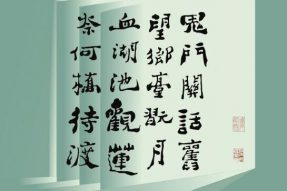 鬼門關話舊
望鄉臺翫月
血湖池觀蓮
奈何橋待渡